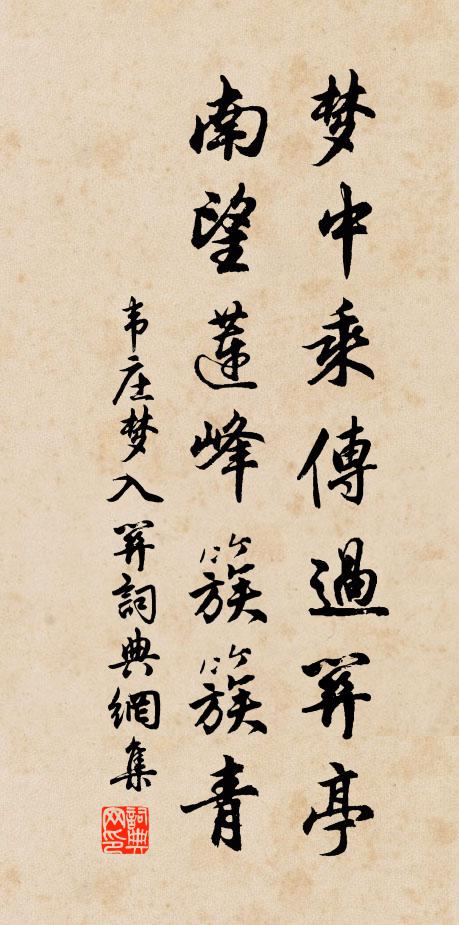 梦中乘傳過關亭
南望蓮峰簇簇青
韦庄梦入關詞典網集
詞典网印